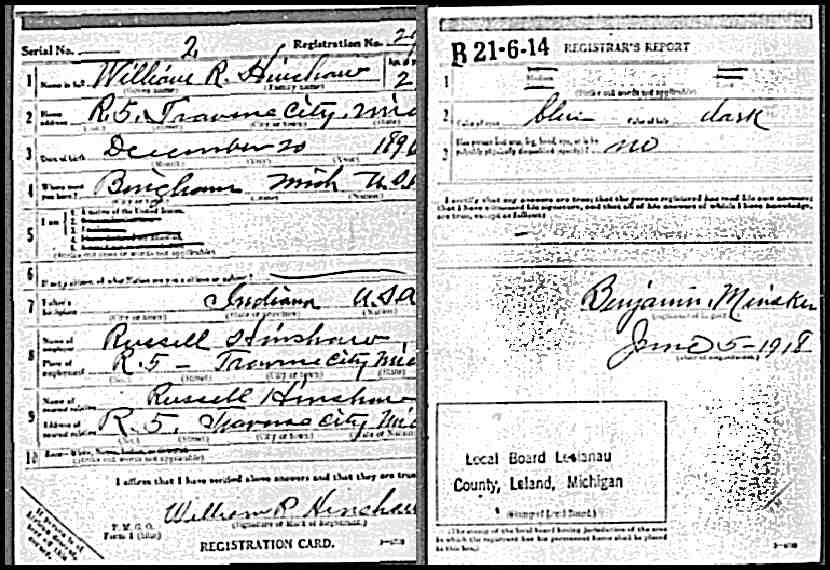 Serial No. 2 Registration No.
1 Name in full William R. Hinshaw
(Given name) (Family name)
2 Home address R.5, Traverse City, Mic
(City or town) (State)
3 Date of birth December 20 189
(Month) (Day) (Year)
4 Where were you born? Bingham Mich USA
(City or town) (State) (Nation)
5 I am
1. A native of the United States.
(Strike out lines or words not applicable)
6 If not a citizen, of what Nation are you a citizen or subject?
7 Father's birthplace Indiana USA
(City or town) (State or province) (Nation)
8 Name of employer Russell Hinshaw
Place of employment R.5 – Traverse City, Mic
(No.) (Street) (City or town) (State)
9 Name of nearest relative Russell Hinshaw
Address of nearest relative R.5, Traverse City, Mic
(No.) (Street) (City or town) (State or Nation)
10 Race—White,
(Strike out words not applicable)
I affirm that I have verified above answers and that they are true
William R Hinshaw
(Signature or mark of registrant.)
P. M. G. O.
Form 1 (blue)
REGISTRATION CARD.
If person is of African descent, cut off this corner.
R 21-6-14 REGISTRAR'S REPORT
1 Medium
(Strike out words not applicable)
2 Color of eyes blue Color of hair dark
3 Has person lost arm, leg, hand, eye, or is he palpably physically disqualified (specify)? no
I certify that my answers are true; that the person registered has read his own answers;
that I have witnessed his signature, and that all of his answers of which I have knowledge,
are true, except as follows:
Benjamin Minsker
(Signature of Registrar)
June 5-1918
(Date of registration.)
Local Board Leelanau
County, Leland, Michigan
(Stamp of Local Board.)
(The stamp of the local board having jurisdiction of the area
in which the registrant has his permanent home shall be placed
in this box.)